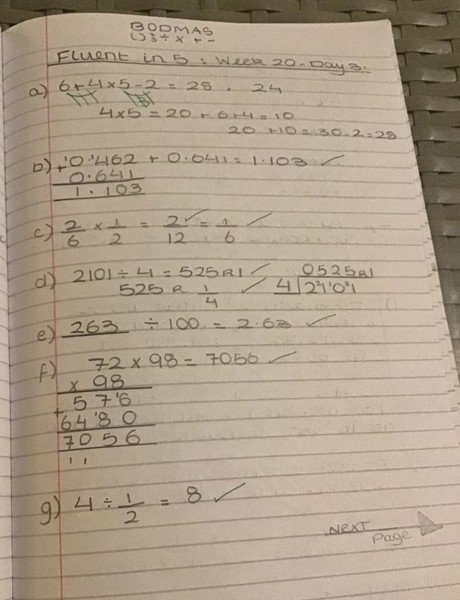 BODMAS
()³÷×+-
Fluent in 5: Week 20-Day 3.
a) 6+4×5-2=28. 24
4×5=20+6+4=10
20+10=30-2=28
b) 0.462+0.641=1.103 ✓
+ 0.641
1.103
c) 2/6 × 1/2 = 2/12 ✓ = 1/6 ✓
d) 2101÷4=525R1 ✓ 0525R1
525 R 1/4 ✓ 4|2²1¹0²1
e) 263 ÷100=2.63 ✓
f) 72×98=7056 ✓
× 98
+ 57¹6
64¹80
7056
1 1
g) 4÷1/2=8 ✓
Next
Page